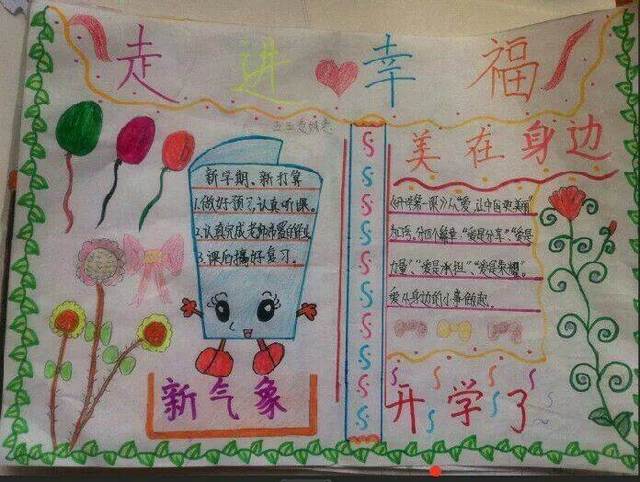 走进幸福
美在身边
新学期、新打算
1.做好预习、认真听课。
2.认真完成老师布置的作业
3.课后搞好复习。
《开学第一课》以“爱,让中国更美丽”
为主题,分四个篇章“爱是分享”“爱是
力量”、“爱是承担”、“爱是荣耀”。
爱从身边的小事做起。
新气象
开学了